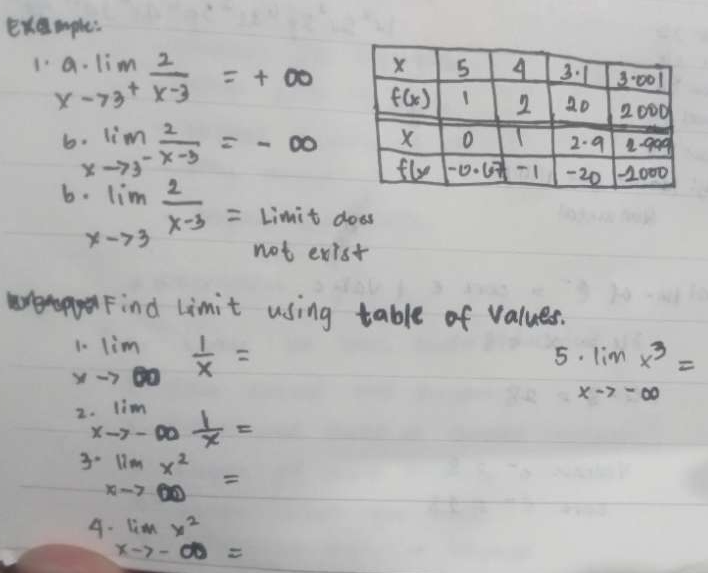 Example:
1. a. lim 2/x-3 = + ∞
x->3⁺
b. lim 2/x-3 = - ∞
x->3⁻
b. lim 2/x-3 = Limit does
x->3 not exist
x 5 4 3.1 3.001
f(x) 1 2 20 2000
x 0 1 2.9 2.999
f(x -0.67 -1 -20 -2000
Find Limit using table of values.
1. lim 1/x =
x-> ∞
2. lim 1/x =
x->-∞
3. lim x² =
x-> ∞
4. lim x² =
x->-∞
5. lim x³ =
x->-∞